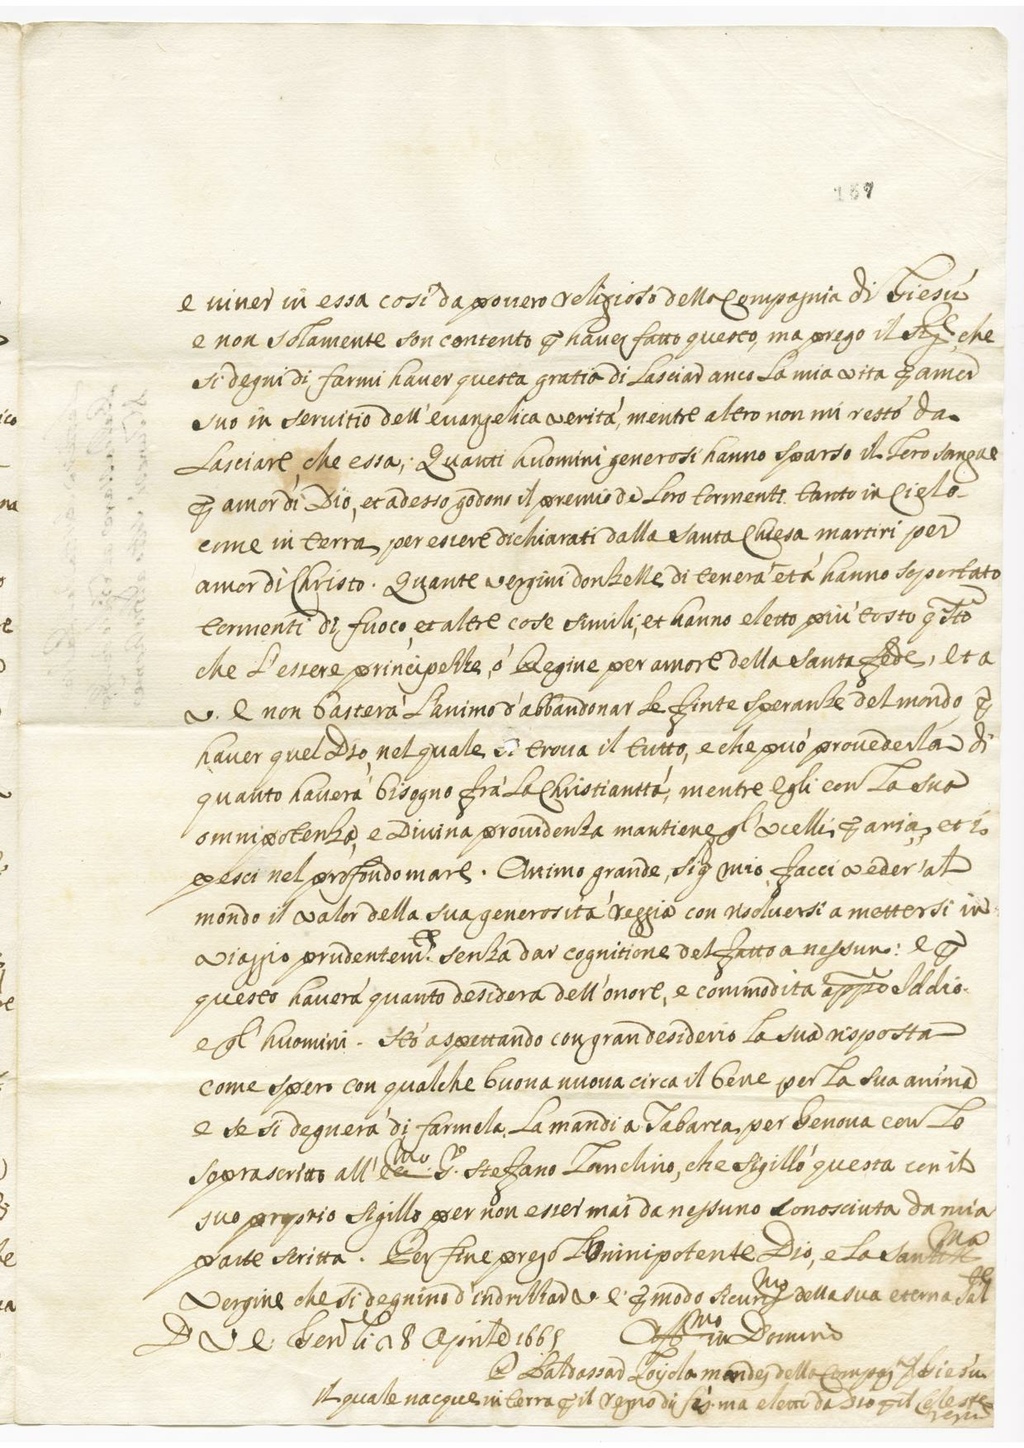 157
e viver in essa così da povero religioso della Compagnia di Giesù
e non solamente son contento p haver fatto questo, ma prego il Sigre, che
si degni di farmi haver questa gratia di lasciar anco la mia vita p amor
suo in servitio dell'evangelica verità, mentre altro non mi restò da
lasciare, che essa; Quanti huomini generosi hanno sparso il loro sangue
p amor di Dio, et adesso godono il premio de loro tormenti tanto in Cielo
come in terra, per essere dichiarati dalla santa Chiesa martiri per
amor di Christo. Quante vergini donzelle di tenera età hanno sopportato
tormenti di fuoco, et altre cose simili, et hanno eletto più tosto qsto
che l'essere principesse, ò Regine per amore della santa fede, et a
V. E non basterà l'animo d'abbandonar le finte speranze del mondo, p
haver quel Dio, nel quale si trova il tutto, e che può provederla di
quanto haverà bisogno frà la Christianità, mentre egli con la sua
omnipotenza, e Divina providenza mantiene gl'ucelli p aria, et i
pesci nel profondo mare. Animo grande, sigr mio, facci veder'al
mondo il valor della sua generosità reggia con risolversi a mettersi in
viaggio prudentemte. senza dar cognitione del fatto a nessuno: e p
questo haverà quanto desidera dell'onore, e commodità appso Iddio
e gl'huomini. Stò aspettando con gran desiderio la sua risposta
come spero con qualche buona nuova circa il bene per la sua anima
e se si degnerà di farmela, la mandi a Tabarca, per Genova con lo
soprascritto all' Stefano Lonchino, che sigillò questa con il
suo proprio sigillo per non esser mai da nessuno conosciuta da mia
parte scritta. Per fine prego l'Onnipotente Dio, e la Santissma
Vergine che si degnino d'indrizzar V E p modo sicurmo della sua eterna Sal
D V E li 28 Aprile 1665 Affmo in Domino
Baldassar Loyola mandes della Comp di Giesù
il quale nacque in terra p il regno di fes. ma eletto da Dio p il Celeste
regno